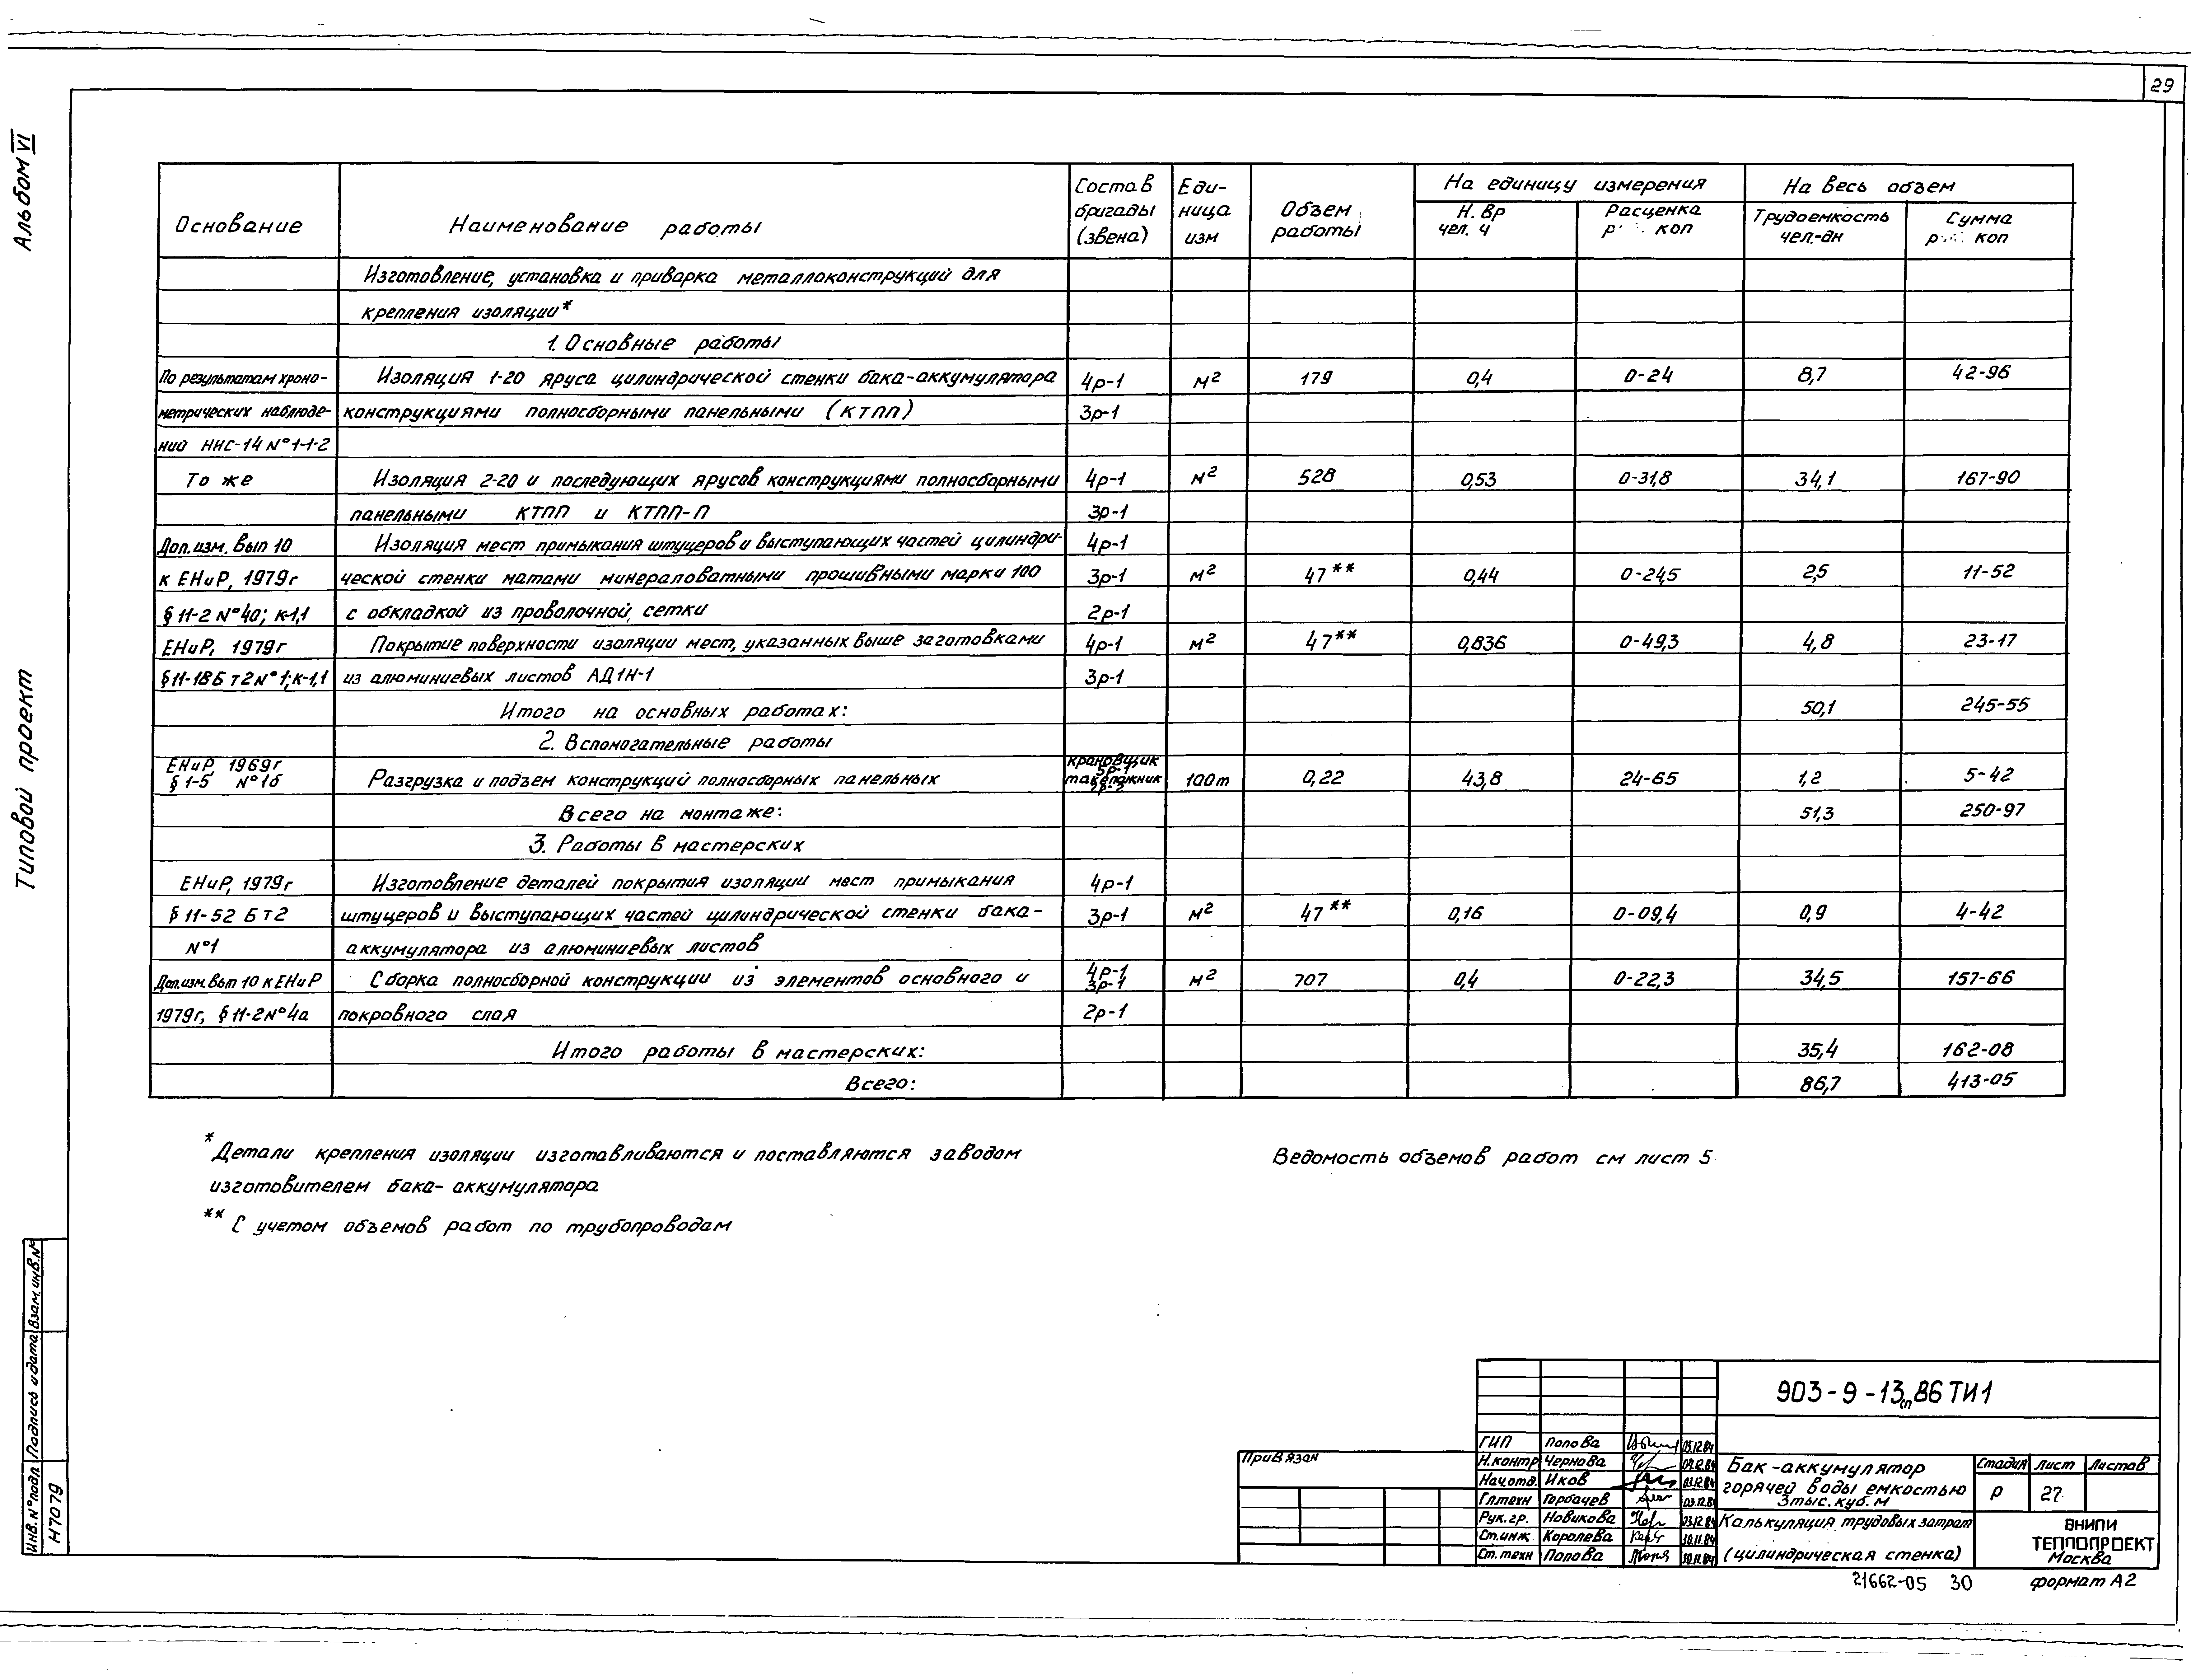 29
Альбом VI
Типовой проект
Основание
Наименование работы
Состав бригады (звена)
Еди-ница изм
Объем работы
На единицу измерения
На весь объем
Н. Вр чел. ч
Расценка р. коп
Трудоемкость чел.-дн
Сумма р. коп
Изготовление, установка и приварка металлоконструкций для
крепления изоляции*
1. Основные работы
По результатам хроно- Изоляция 1-20 яруса цилиндрической стенки бака-аккумулятора 4р-1 м² 179 0,4 0-24 8,7 42-96
метрических наблюде- конструкциями полносборными панельными (КТПП) 3р-1
ний ННС-14 N°1-1-2
То же Изоляция 2-20 и последующих ярусов конструкциями полносборными 4р-1 м² 528 0,53 0-31,8 34,1 167-90
панельными КТПП и КТПП-П 3р-1
Доп.изм. Вып 10 Изоляция мест примыкания штуцеров и выступающих частей цилиндри- 4р-1
к ЕНиР, 1979г ческой стенки матами минераловатными прошивными марки 100 3р-1 м² 47** 0,44 0-24,5 2,5 11-52
§ 11-2 N°40; к-1,1 с обкладкой из проволочной сетки 2р-1
ЕНиР, 1979г Покрытие поверхности изоляции мест, указанных выше заготовками 4р-1 м² 47** 0,836 0-49,3 4,8 23-17
§11-18Б т2 N°1; к-1,1 из алюминиевых листов АД1Н-1 3р-1
Итого на основных работах: 50,1 245-55
2. Вспомогательные работы
ЕНиР 1969г крановщик
§ 1-5 N°1б Разгрузка и подъем конструкций полносборных панельных 5р-1 такелажник 2р-2 100т 0,22 43,8 24-65 1,2 5-42
Всего на монтаже: 51,3 250-97
3. Работы в мастерских
ЕНиР, 1979г Изготовление деталей покрытия изоляции мест примыкания 4р-1
§ 11-52 Б т2 штуцеров и выступающих частей цилиндрической стенки бака- 3р-1 м² 47** 0,16 0-09,4 0,9 4-42
N°1 аккумулятора из алюминиевых листов
Доп.изм. Вып 10 к ЕНиР Сборка полносборной конструкции из элементов основного и 4р-1 3р-1 м² 707 0,4 0-22,3 34,5 157-66
1979г, § 11-2 N°4а покровного слоя 2р-1
Итого работы в мастерских: 35,4 162-08
Всего: 86,7 413-05
* Детали крепления изоляции изготавливаются и поставляются заводом
изготовителем бака-аккумулятора
** С учетом объемов работ по трубопроводам
Ведомость объемов работ см лист 5
Инв. N°подл. Подпись и дата Взам. инв. N°
Н7079
Привязан
903-9-13сп86 ТИ1
ГИП Попова 05.12.84
Н.контр Чернова 04.12.84
Нач.отд. Иков 03.12.84
Гл.техн Горбачев 03.12.84
Рук. гр. Новикова 03.12.84
Ст.инж. Королева 30.11.84
Ст. техн Попова 30.11.84
Бак-аккумулятор
горячей воды емкостью
3тыс. куб. м
Стадия Лист Листов
Р 27
Калькуляция трудовых затрат
(цилиндрическая стенка)
ВНИПИ
ТЕПЛОПРОЕКТ
Москва
21662-05 30
формат А2